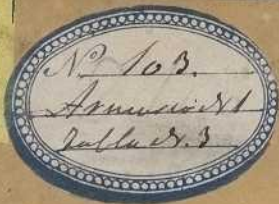 Nº 103.
Armario N 1
Tabla N. 3